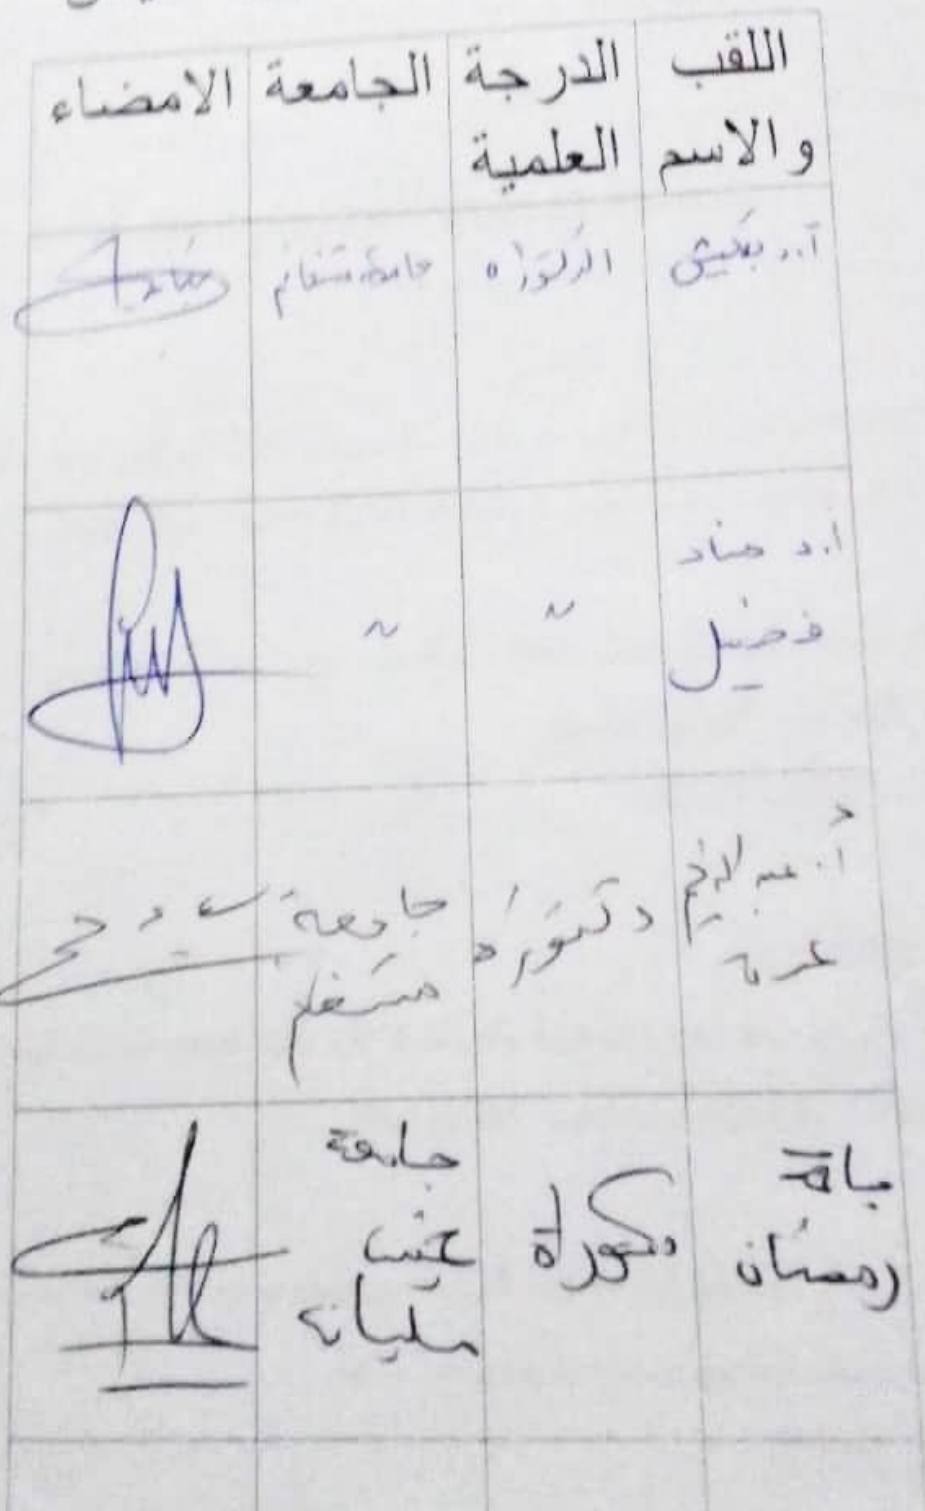 اللقب والاسم
الدرجة العلمية
الجامعة
الامضاء
أ.د بكيش
الدكتوراه
جامعة مستغانم
أ.د مناد
فضيل
〃
〃
دكتوراه
جامعة
مستغانم
باقة
رمضان
دكتوراة
جامعة
خميس
مليانة